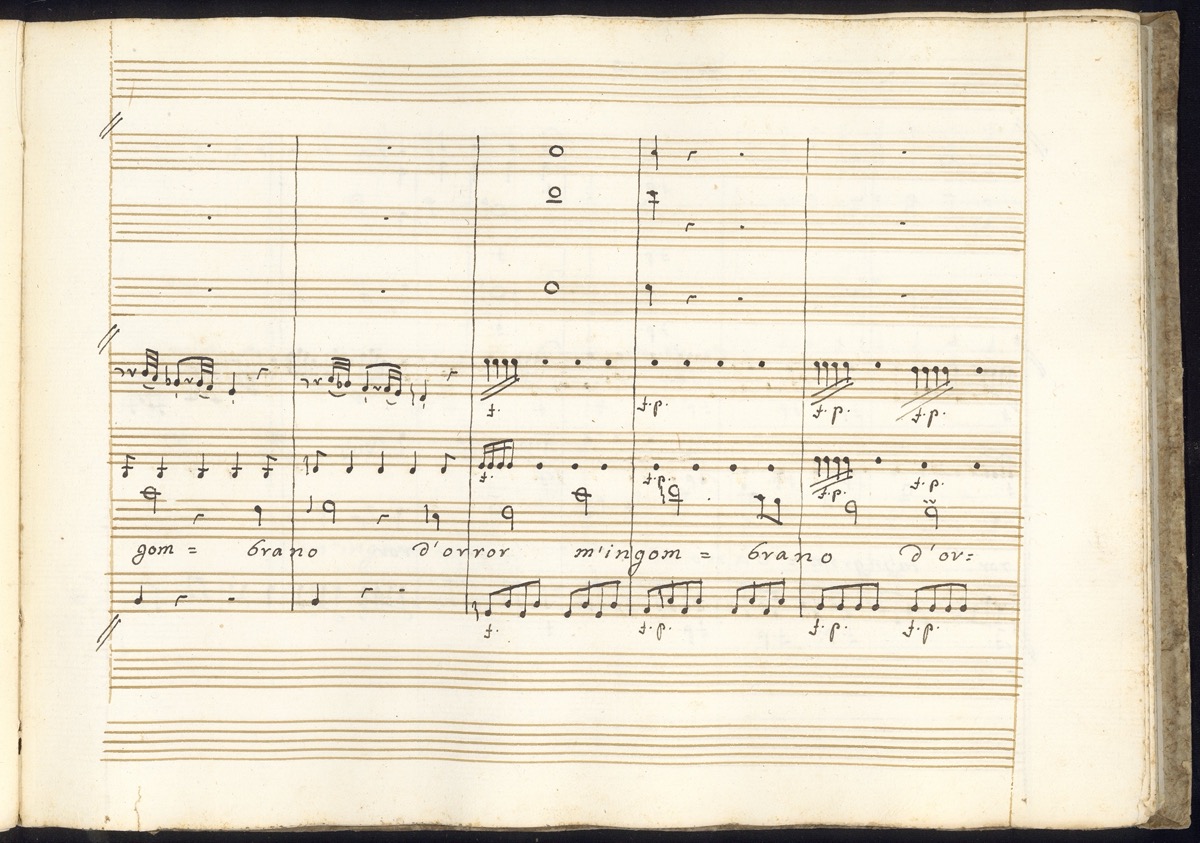 f. f.p. f.p. f.p.
f. f.p. f.p. f.p.
gom = brano d'orror m'ingom = brano d'or=
f. f.p. f.p. f.p.